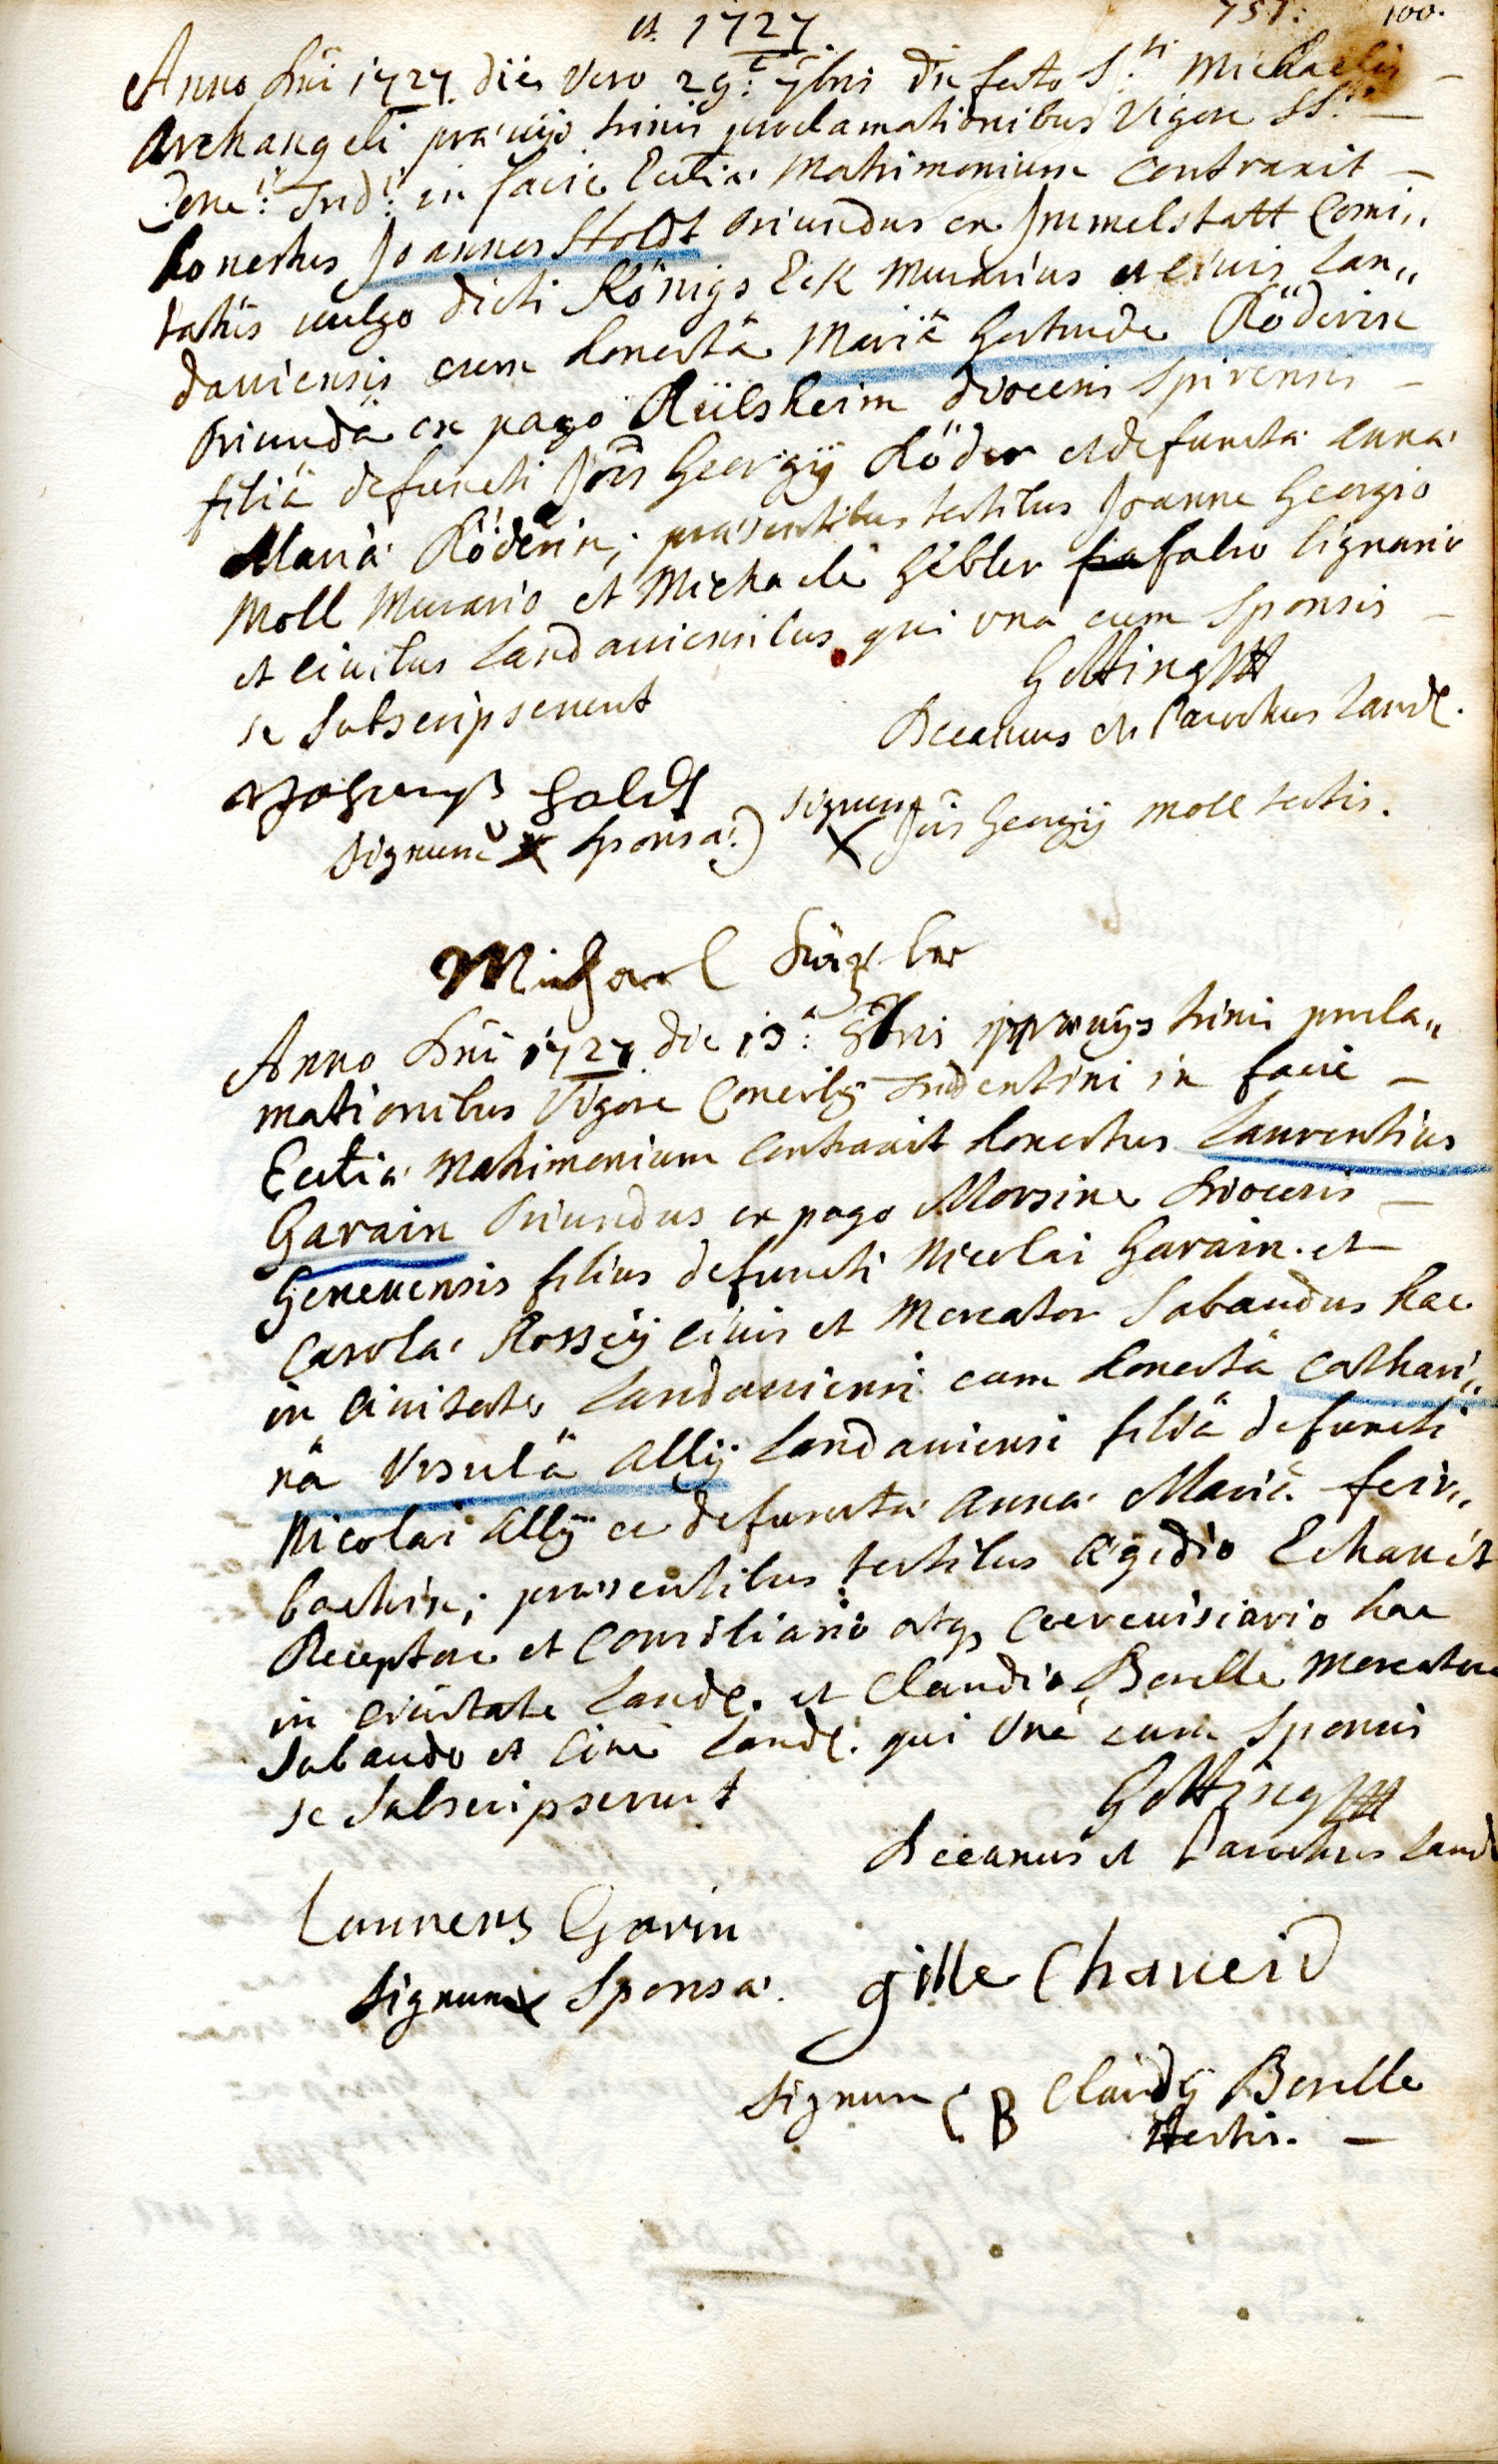 et 1727. 757: 100.
Anno Dni 1727 die vero 29: 7bris die festo S.ti Michaelis –
Archangeli praevijs trinis proclamationibus Vigore SS.ti –
Conc: Trid: in facie Eccliae Matrimonium contraxit –
honestus Joannes Holdt oriundus ex Immelstatt Comi„
tatus vulgo dicti Königs Eck murarius et civis Lan„
daviensis cum honestâ Mariâ Gertrude Röderin
oriundâ ex pago Rülsheim dioecesis Spirensis –
filiâ defuncti Jois Georgij Röder et defunctae Annae
Mariae Röderin; praesentibus testibus Joanne Georgio
Moll Murario et Michaele Gebler fabro lignario
et civibus Landaviensibus qui una cum Sponsis –
se Subscripserunt
Götting
Decanus et Parochus Land:
Johannes Holdt
signum x Sponsae)
signum x Jois Georgij Moll testis.
Michael
Anno Dni 1727 die 13: 8bris praevijs trinis procla„
mationibus Vigore Concilij Tridentini in facie –
Eccliae Matrimonium contraxit honestus Laurentius
Garain Oriundus ex pago Morsine Dioecesis –
Genevensis filius defuncti Nicolai Garain et
Carolae Rossey civis et Mercator Sabaudus hac
in civitate Landaviensi cum honestâ Cathari„
nâ Ursulâ Ally Landaviensi filiâ defuncti
Nicolai Ally et defunctae Annae Mariae feir„
bachin; praesentibus testibus Aegidio Echaneit
Receptore et Consiliario atqz Coerevisiario hac
in civitate Land: et Claudio Berelle Mercatore
Sabaudo et Cive Land: qui Una cum Sponsis
se Subscripserunt
Götting
Decanus et Parochus Land
Laurens Garin
Signum x Sponsae.
gille Chaneid
Signum C B Claudij Berelle
testis. –